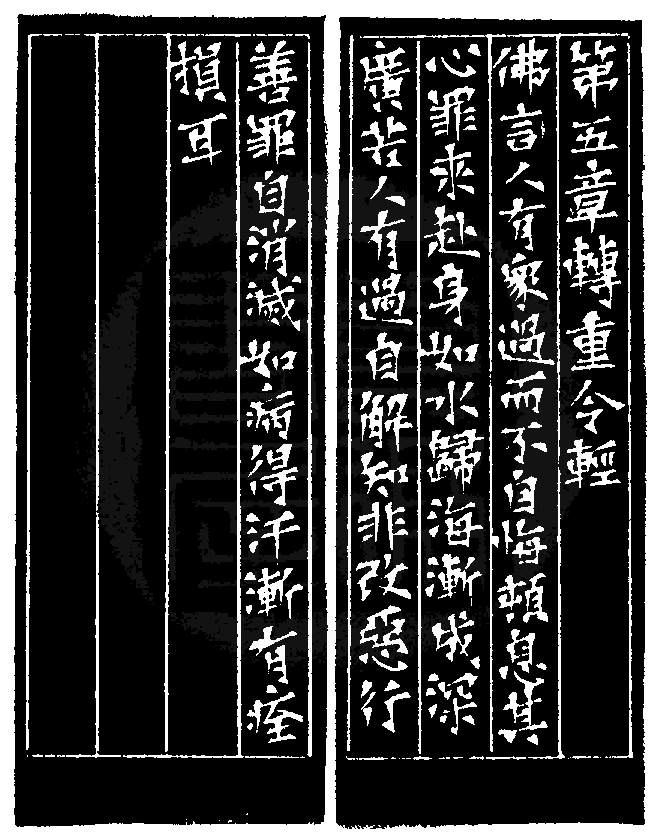 第五章轉重令輕
佛言人有衆過而不自悔頓息其
心罪來赴身如水歸海漸成深
廣若人有過自解知非改惡行
善罪自消滅如病得汗漸有痊
損耳